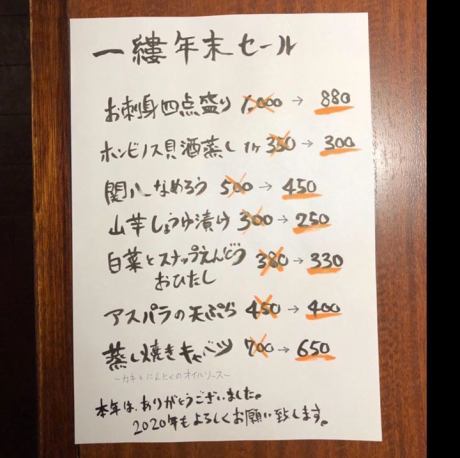 一縷年末セール
お刺身四点盛り 1,000 → 880
ホンビノス貝酒蒸し 1ケ 350 → 300
関八なめろう 500 → 450
山芋しょうゆ漬け 300 → 250
白菜とスナップえんどう 380 → 330
おひたし
アスパラの天ぷら 450 → 400
蒸し焼きキャベツ 700 → 650
〜カキとにんにくのオイルソース〜
本年は、ありがとうございました。
2020年もよろしくお願い致します。